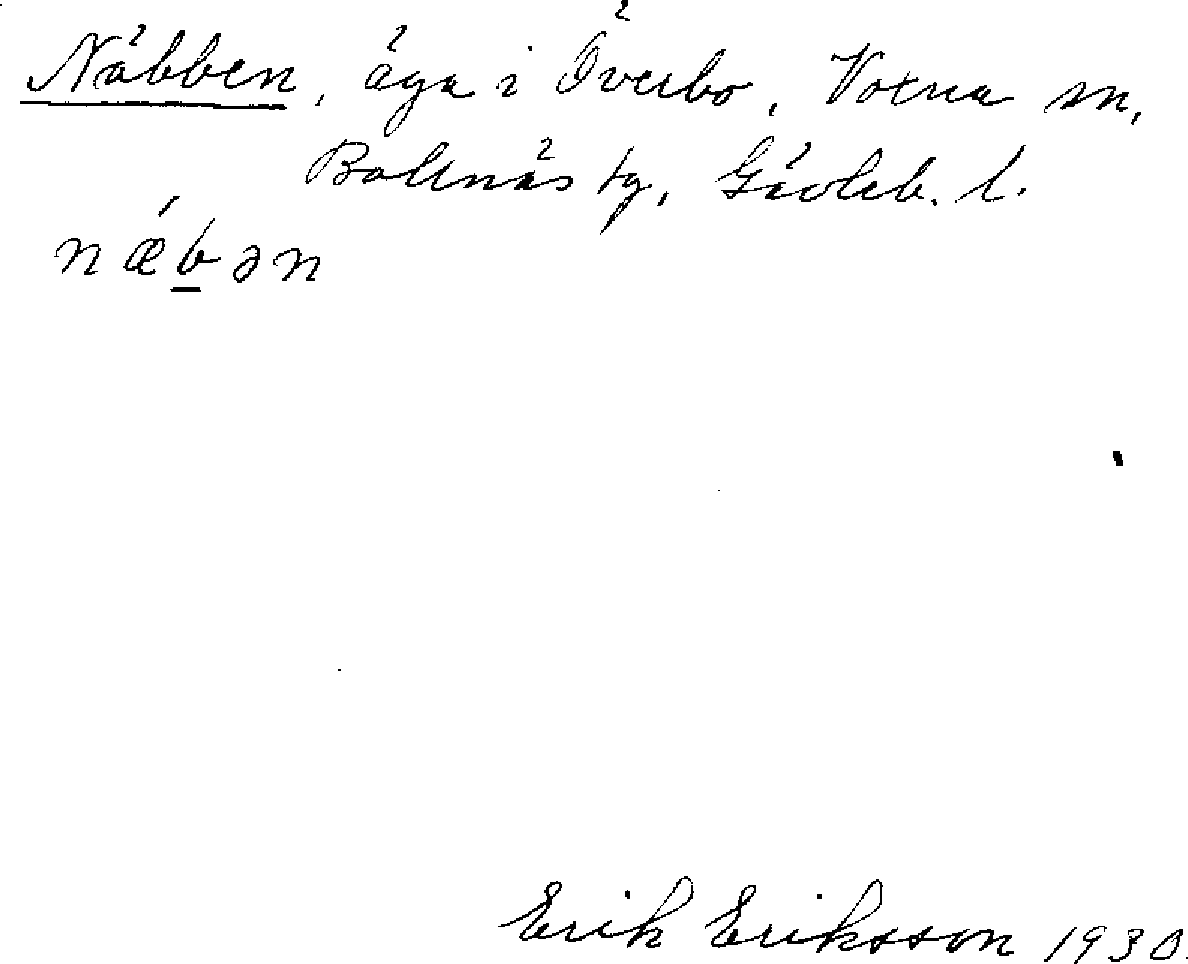 Näbben, äga i Överbo, Voxna sn,
Bollnäs tg, Gävleb. l.
næ´bən
Erik Eriksson 1930.